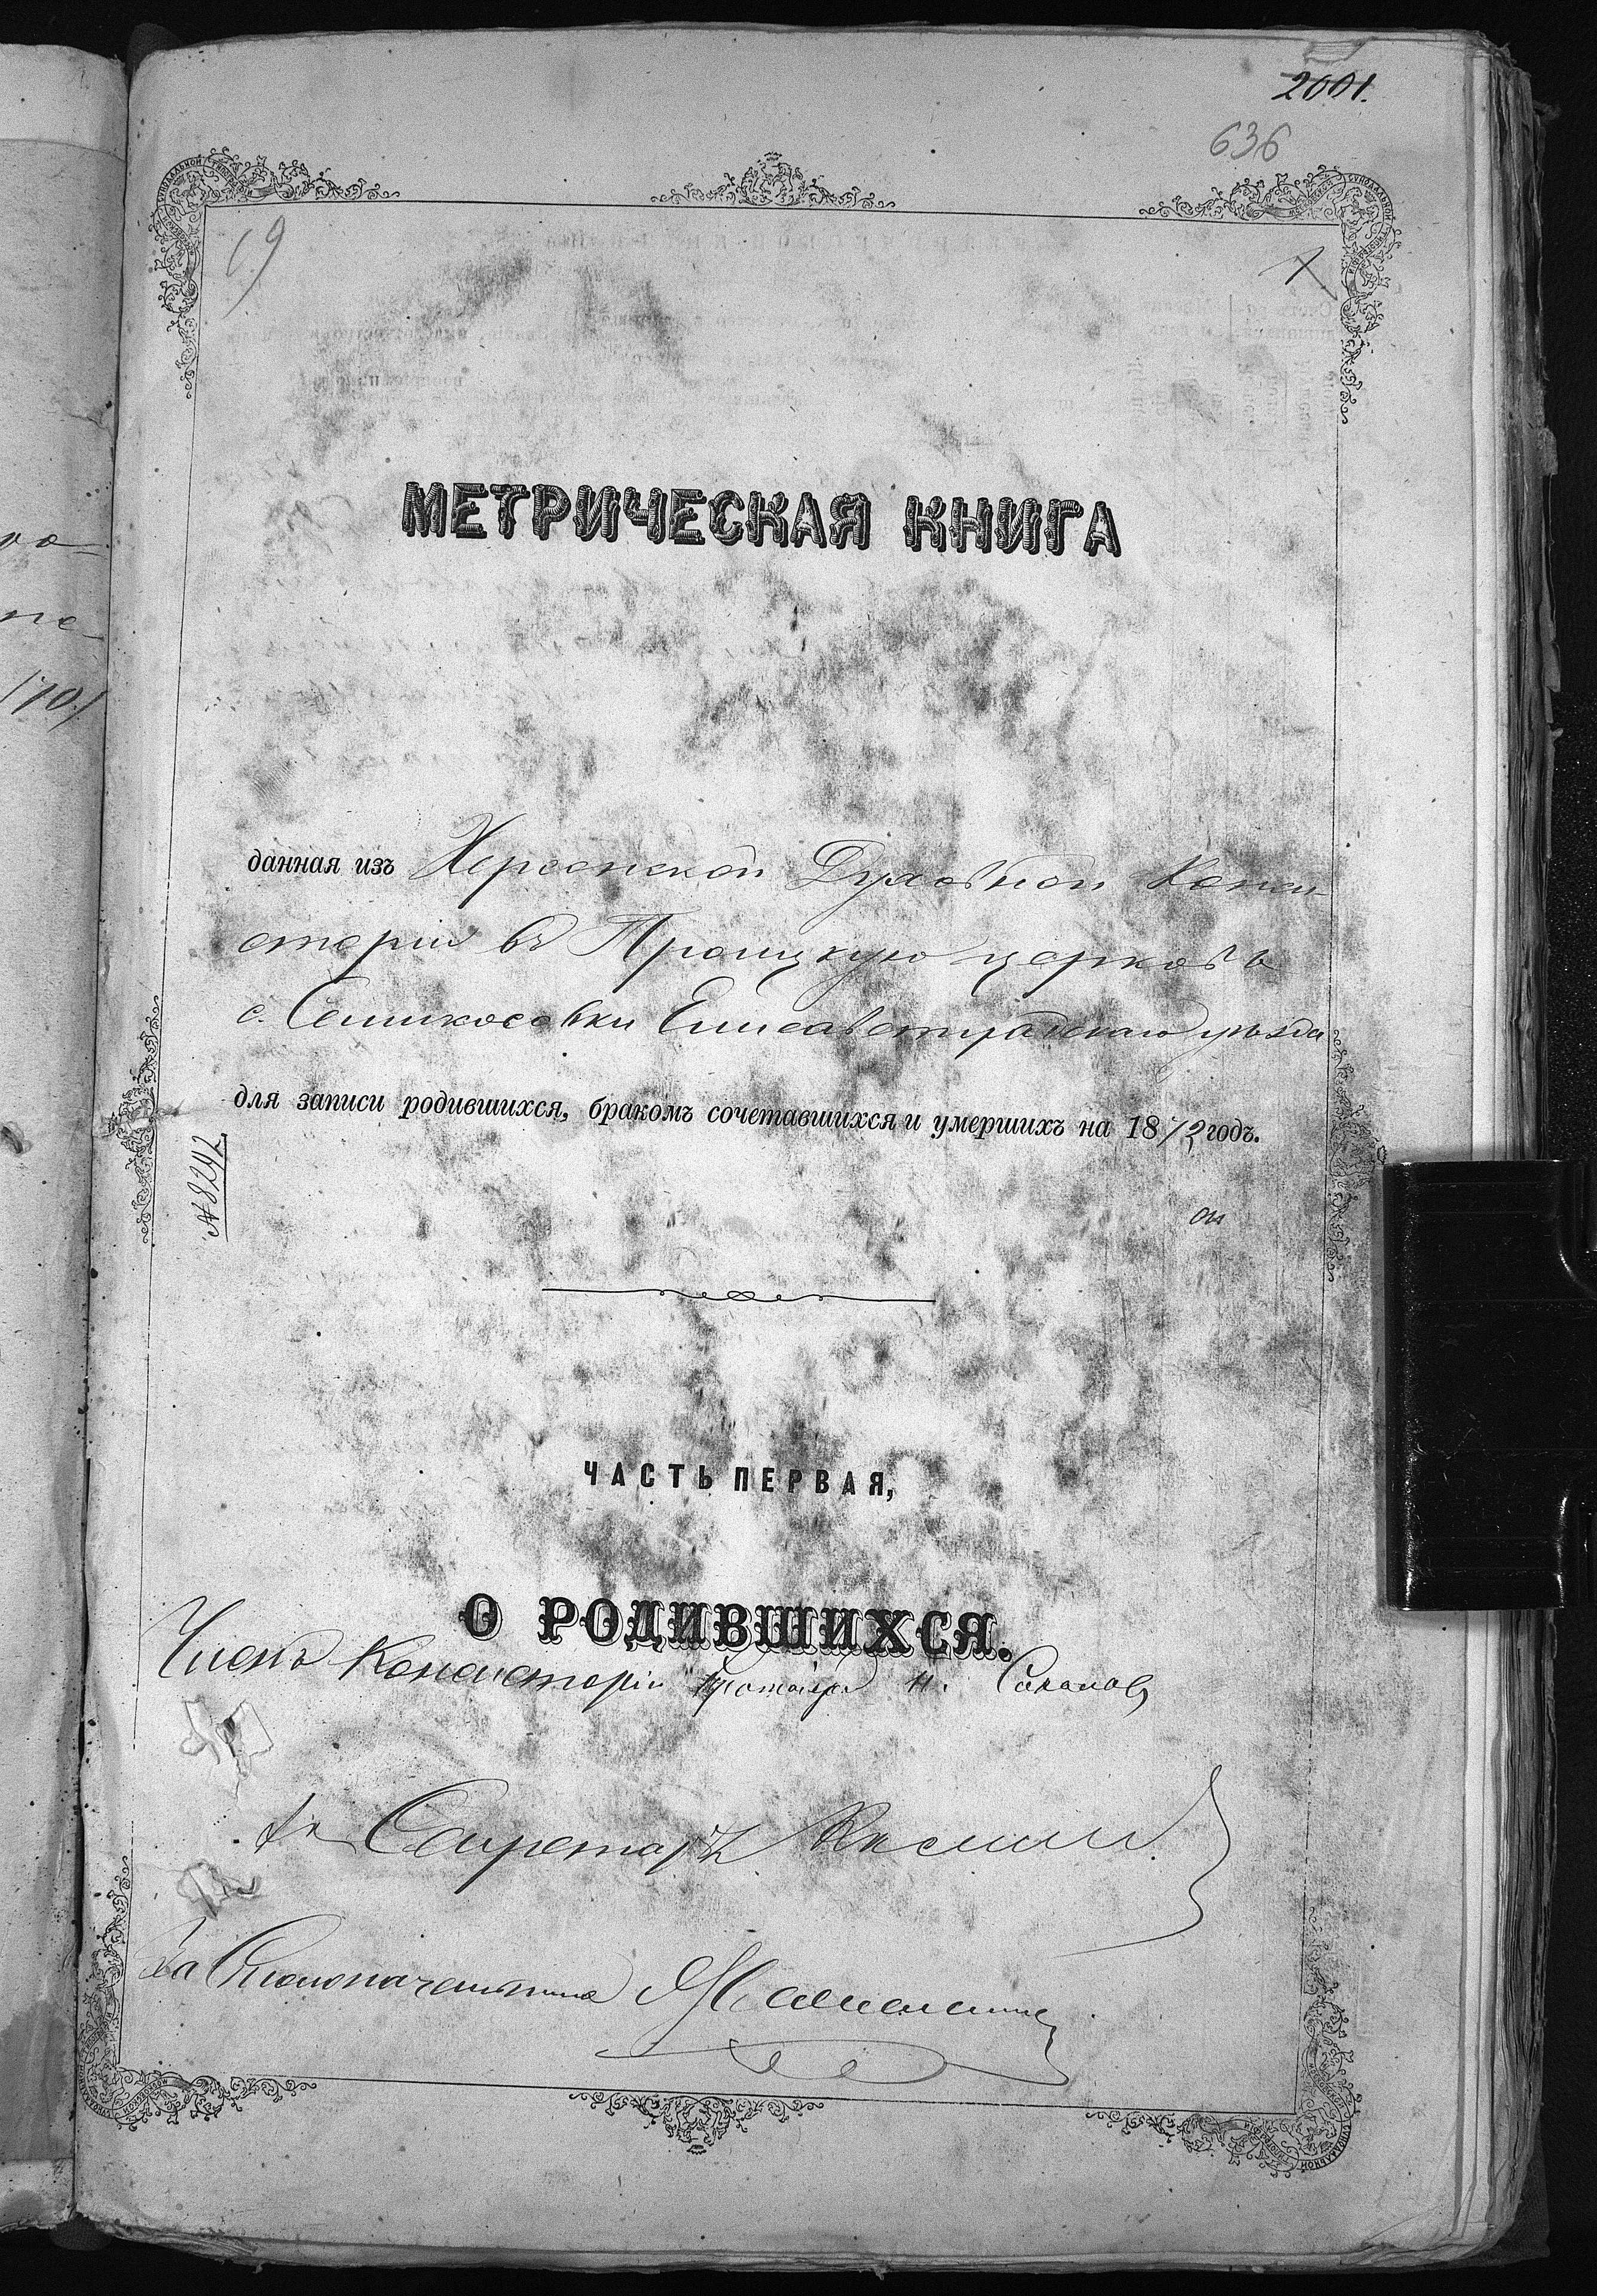 2001.
636
19
МЕТРИЧЕСКАЯ КНИГА
данная изъ Херсонской Духовной Конси-
сторіи въ Троицкую церковь
с. Семикосовки Елисаветградскаго уѣзда
для записи родившихся, бракомъ сочетавшихся и умершихъ на 1872 годъ.
№ 8242
ЧАСТЬ ПЕРВАЯ,
О РОДИВШИХСЯ.
Членъ Консисторіи Протоіерей Н. Соколовъ
Секретарь
За Столоначальника